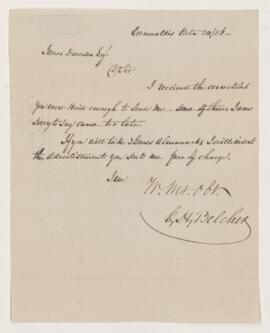 Cornwallis Octr 20/56
James Dawson Esq
Sir
I received the corrections
you were kind enough to send me - some of them I am
sorry to say came too late.
If you will take 3 Almanacks I will insert
the Advertisement you sent me free of charge.
I am
Yr. Mt. Obt.
C. H. Belcher